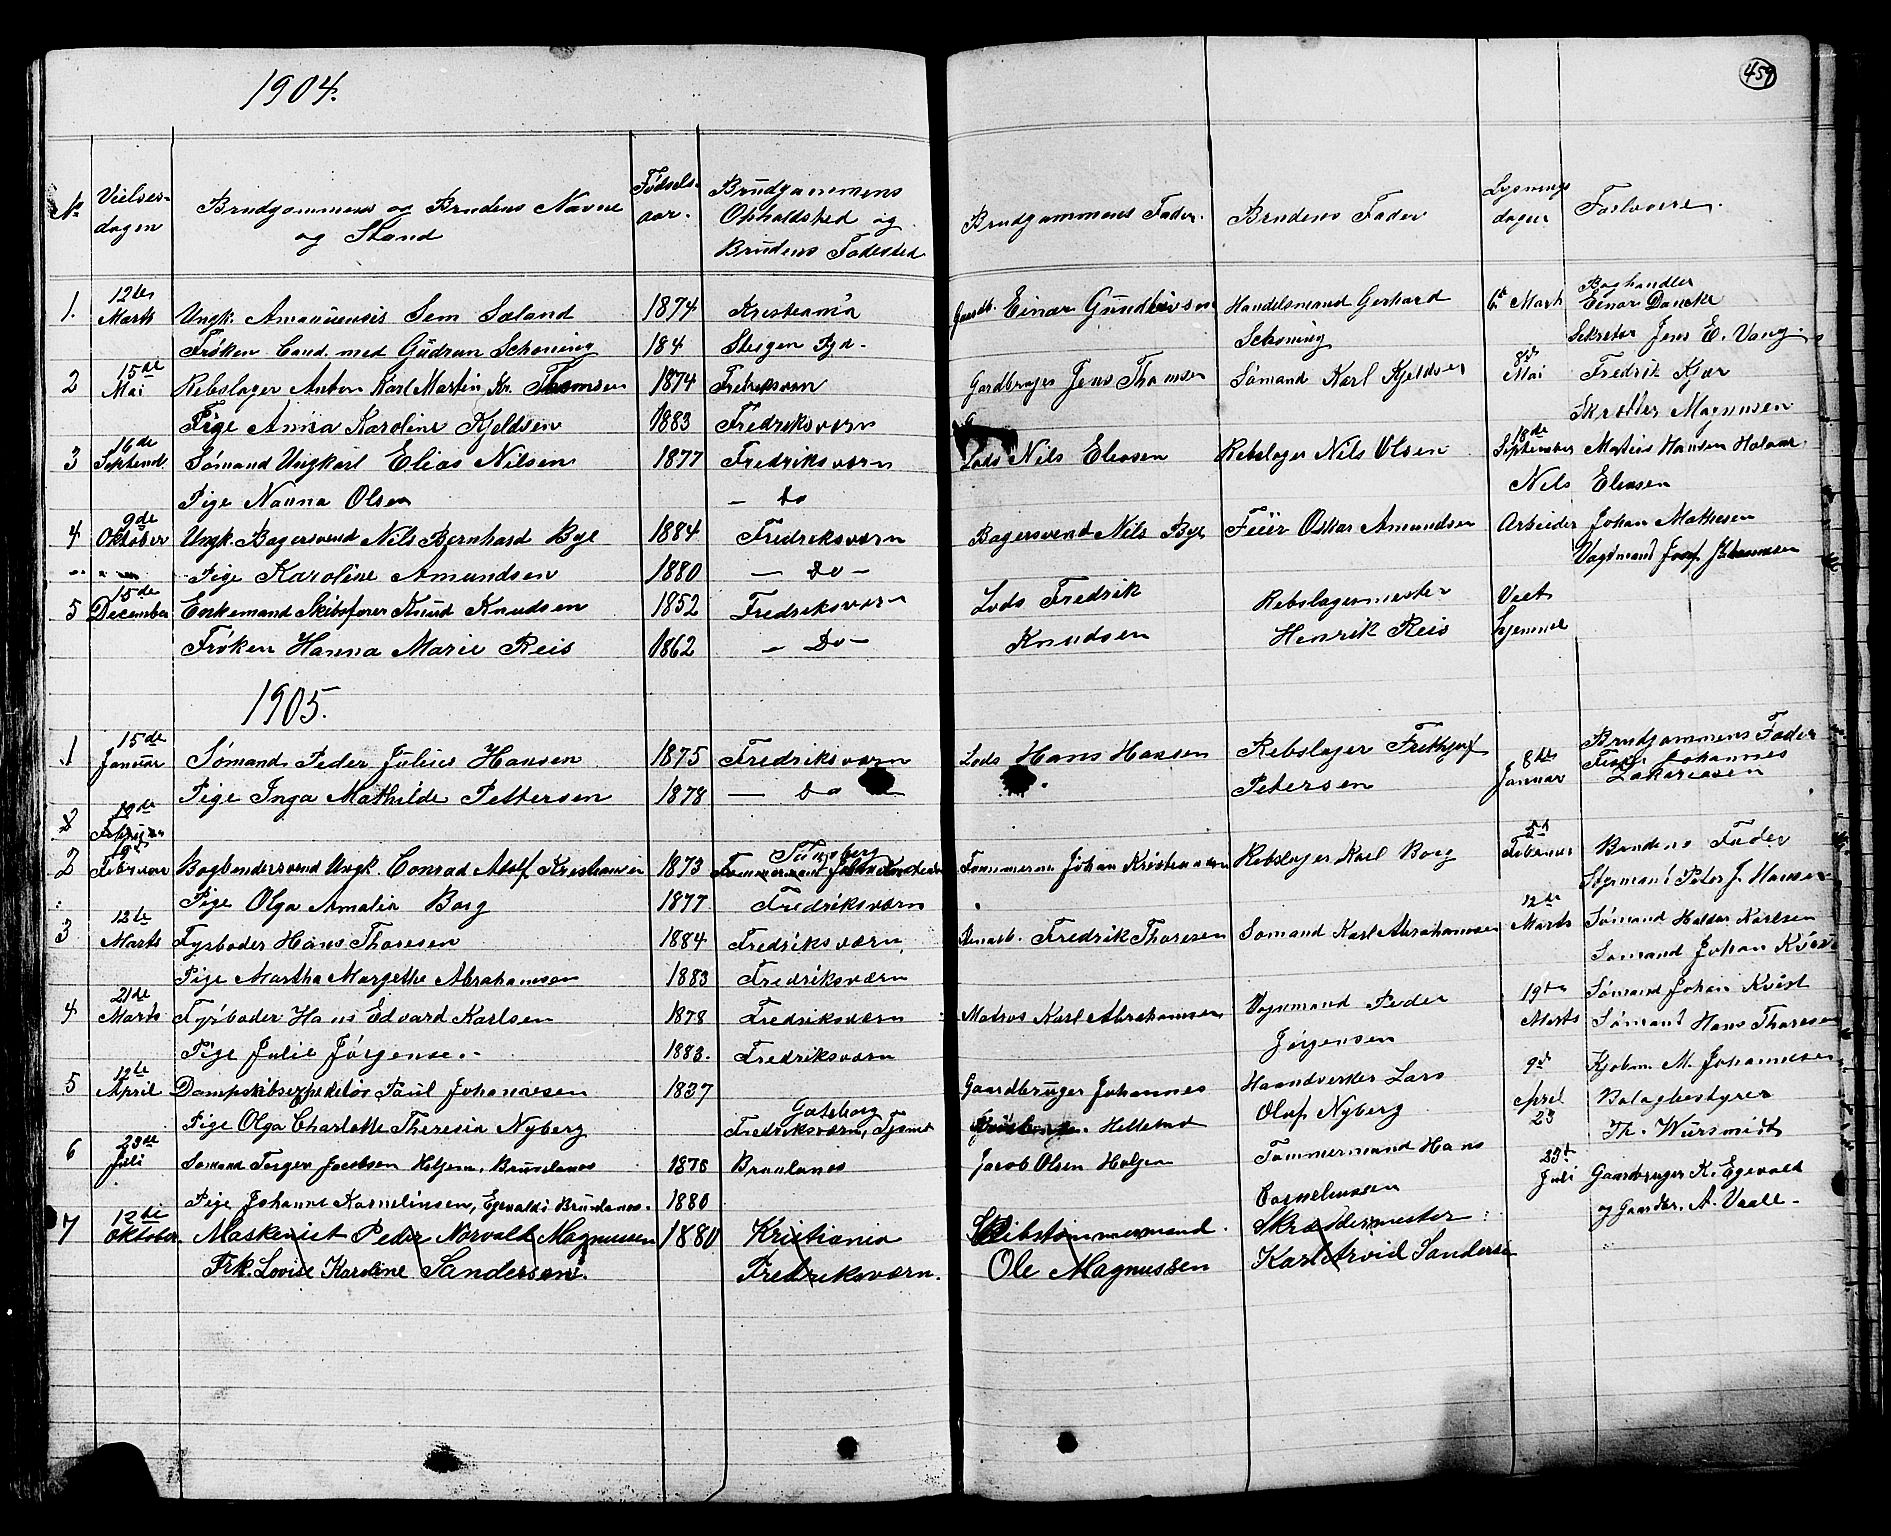 1904.
459
No Vielses- dagen Brudgommens og Brudens Navne og Stand Fødsels- aar. Brudgommens Opholdsted og Brudens Fødested Brudgommens Fader. Brudens Fader Lysnings dagen Forlovere.
1. 12te Marts Ungk. Amanuensis Sem Sæland 1874 Kristiania Einar Gundbersen Handelsmand Gerhard 6te Marts Boghandler Einar Dancke
Frøken Cand. med Gudrun Schøning 184 Stegen Schøning Sekretær Jens E. Vang.
2 15de Mai Rebslager Anton Karl Martin Kr. Thomsen 1874 Fredriksværn Gardbruger Jens Thomsen Sømand Karl Kjeldsen 8de Mai Fredrik Kjær
Pige Anna Karoline Kjeldsen 1883 Fredriksværn Skræder Magnusen
3 16de Septemb. Sømand Ungkarl Elias Nilsen 1877 Fredriksværn Lods Nils Eleasen Rebslager Nils Olsen 18de September Matias Hansen
Pige Nanna Olsen — Do Nils Eleasen
4 9de Oktober Ungk. Bagersvend Nils Bernhard Bye 1884 Fredriksværn Bagersvend Nils Bye Feier Oskar Amundsen Arbeider Johan Mathesen
Pige Karoline Amundsen 1880 — Do — Vagtmand Josef Johannesen
5 15de December Enkemand Skibsfører Knud Knudsen 1852 Fredriksværn Lods Fredrik Rebslagermester Viet
Frøken Hanna Marie Reis 1862 — Do — Knudsen Henrik Reis hjemme
1905.
1 15de Januar Sømand Peder Julius Hansen 1875 Fredriksværn Lods Hans Hansen Rebslager Frithjof 8de Januar Brudgommens Fader
Pige Inga Mathilde Pettersen 1878 — Do — Petersen Johannes Zakariasen
2 19de Februar
2 Februar Bogbindersvend Ungk. Conrad Adolf Kristiansen 1873 Tønsberg Tømmermand Johan Kristiansen Rebslager Karl Borg 5te Februar Brudens Fader
Pige Olga Amalia Borg 1877 Fredriksværn Styrmand Peter J. Hansen
3 12te Marts Fyrbøder Hans Thoresen 1884 Fredriksværn Fredrik Thoresen Sømand Karl Abrahamsen 12te Marts Sømand Haldor Karlsen
Pige Martha Margethe Abrahamsen 1883 Fredriksværn Sømand Johan Kvist
4 21de Marts Fyrbøder Hans Edvard Karlsen 1878 Fredriksværn Matros Karl Abrahamsen Vognmand Peder 19de Marts Sømand Johan Kvist
Pige Julie Jørgensen 1883. Fredriksværn Jørgensen Sømand Hans Thoresen
5 12te April Dampskibsexpeditør Paul Johannesen 1837 Gaardbruger Johannes Haandverker Lars 9de April Kjøbm. M. Johannesen
Pige Olga Charlotte Theresia Nyberg Gøteborg Fredriksværn, Hellestad Olof Nyberg 23 Bolagbestyrer
Th. Wursmidt
6 23de Juli Sømand Torger Jacobsen Holjem, Brunlanes 1876 Brunlanes Jacob Olsen Holjem Tømmermand Hans 23de Juli Gaardbruger K. Egevold
Pige Johanne Kornelinsen, Egevald i Brunlanes. 1880 Cornelinssen og Gaardbr. A. Vaale.
7 12te Oktober. Maskenist Peder Norvald Magnussen 1880 Kristiania Skibstømmermand. Skræddermester
Frk. Lovise Karoline Sanderson. Fredriksværn. Ole Magnussen Karl Arvid Sanderson